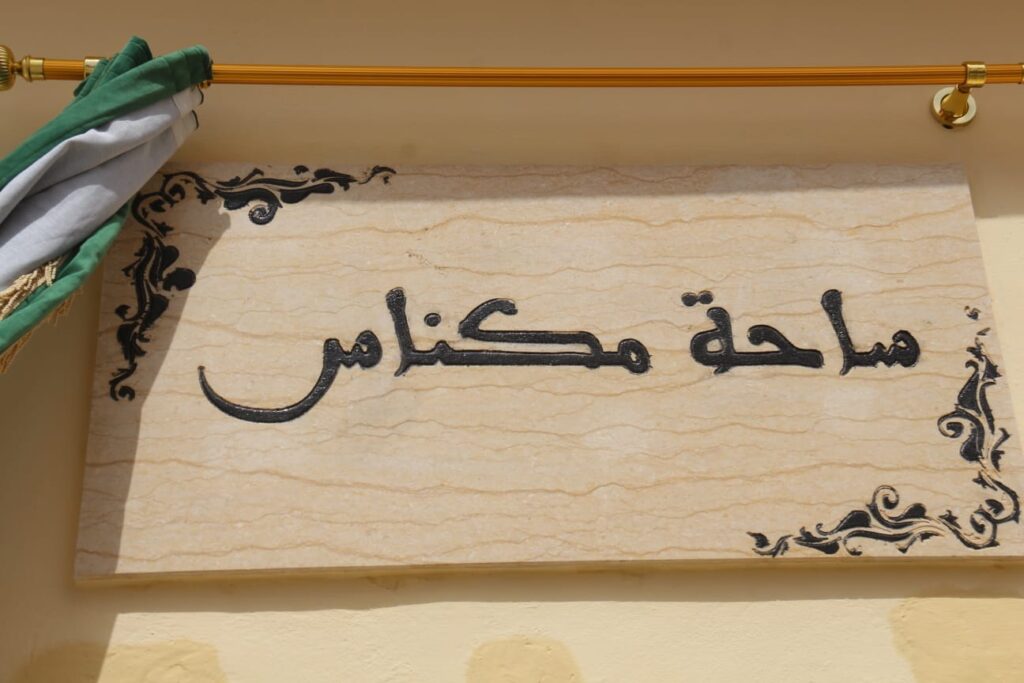 ساحة مكناس